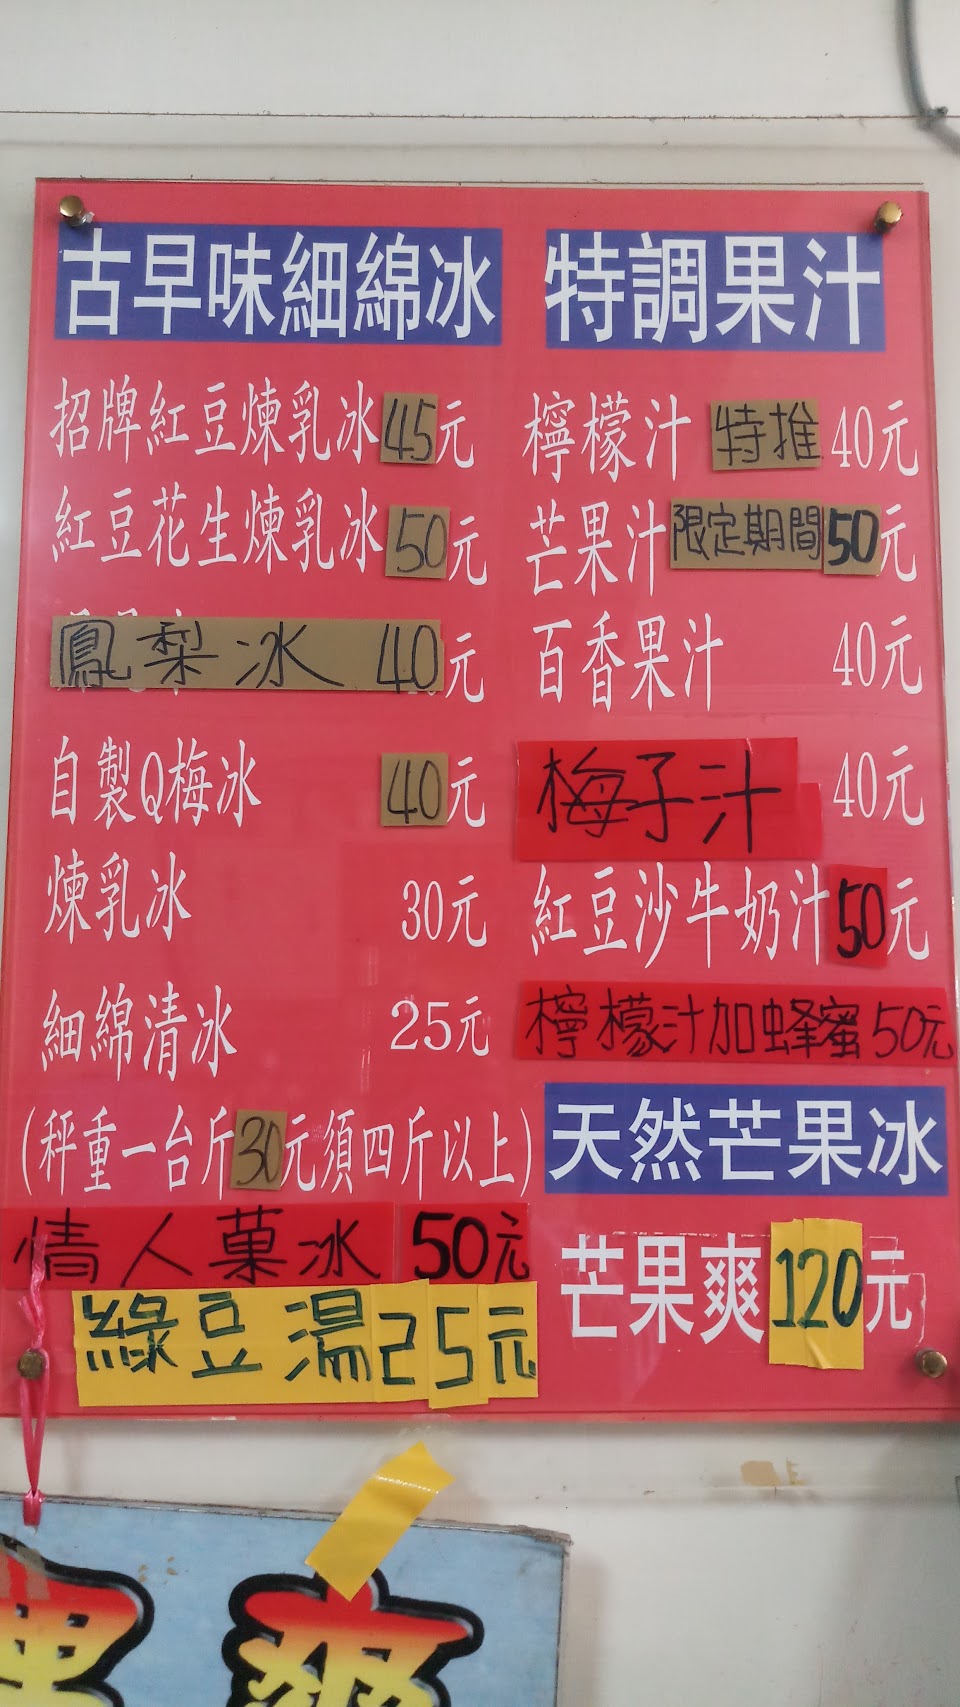 古早味細綿冰
招牌紅豆煉乳冰45元
紅豆花生煉乳冰50元
鳳梨冰 40元
自製Q梅冰 40元
煉乳冰 30元
細綿清冰 25元
(秤重一台斤30元須四斤以上)
情人菓冰 50元
綠豆湯25元
特調果汁
檸檬汁 特推 40元
芒果汁 限定期間 50元
百香果汁 40元
梅子汁 40元
紅豆沙牛奶汁50元
檸檬汁加蜂蜜50元
天然芒果冰
芒果爽120元